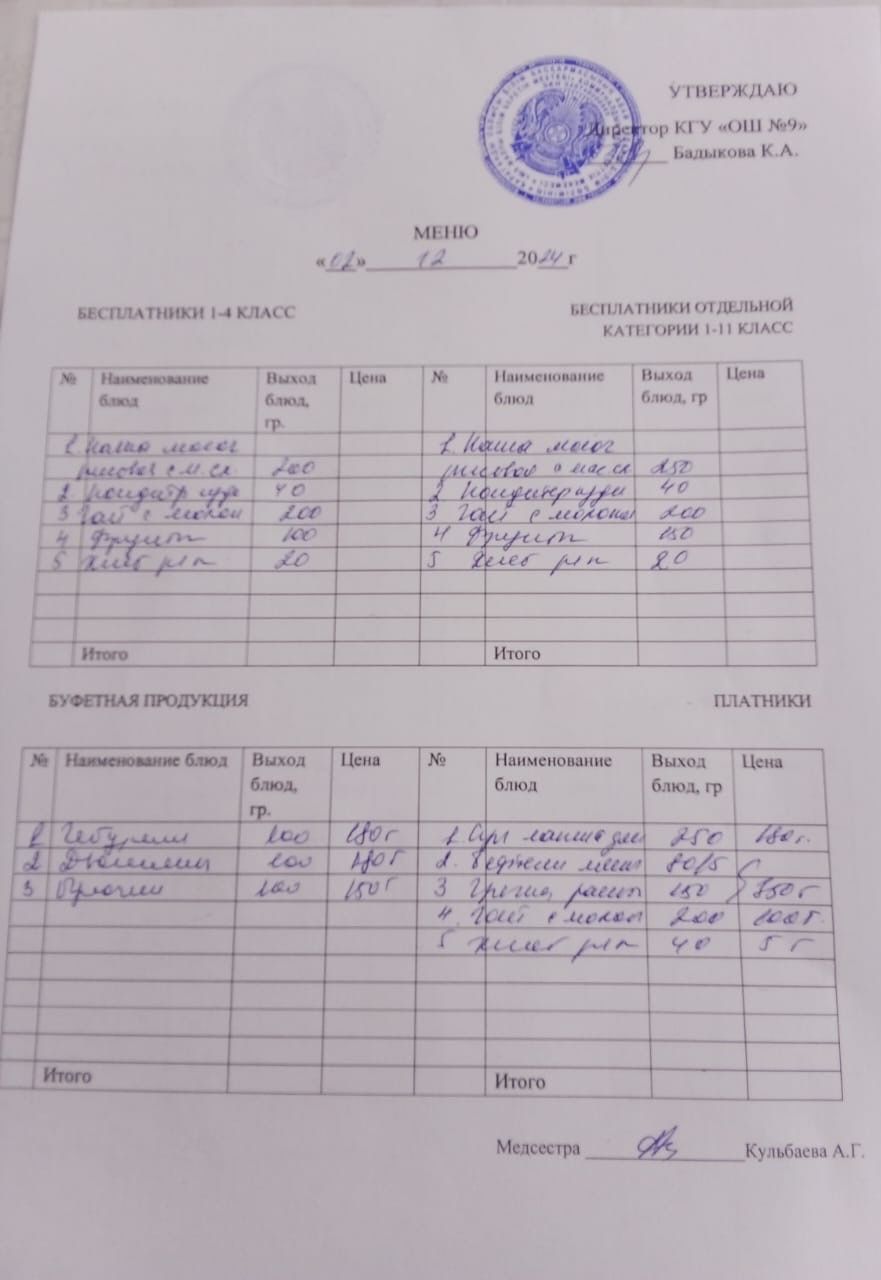 УТВЕРЖДАЮ
Директор КГУ «ОШ №9»
Бадыкова К.А.
МЕНЮ
«02» 12 2024г
БЕСПЛАТНИКИ 1-4 КЛАСС
БЕСПЛАТНИКИ ОТДЕЛЬНОЙ
КАТЕГОРИИ 1-11 КЛАСС
№ Наименование блюд Выход блюд, гр. Цена № Наименование блюд Выход блюд, гр Цена
1. Каша молог 1. Каша молог
рисовая с м.сл 200 рисовая с мас сл 250
2. Кондитр изд 40 2 Кондитер изде 40
3 Чай с молок 200 3 Чай с молоком 200
4 Фрукт 100 4 Фрукт 150
5 Хлеб рж 20 5 Хлеб рж 20
Итого Итого
БУФЕТНАЯ ПРОДУКЦИЯ ПЛАТНИКИ
№ Наименование блюд Выход блюд, гр. Цена № Наименование блюд Выход блюд, гр Цена
1 Чебуреки 100 180т 1. Суп лапша 250 180т.
2 100 180т 2. 80/5
3 100 150т 3 Гречка рассып 150 350т
4. Чай с молок 200 100т.
5 Хлеб рж 40 5т
Итого Итого
Медсестра Кульбаева А.Г.